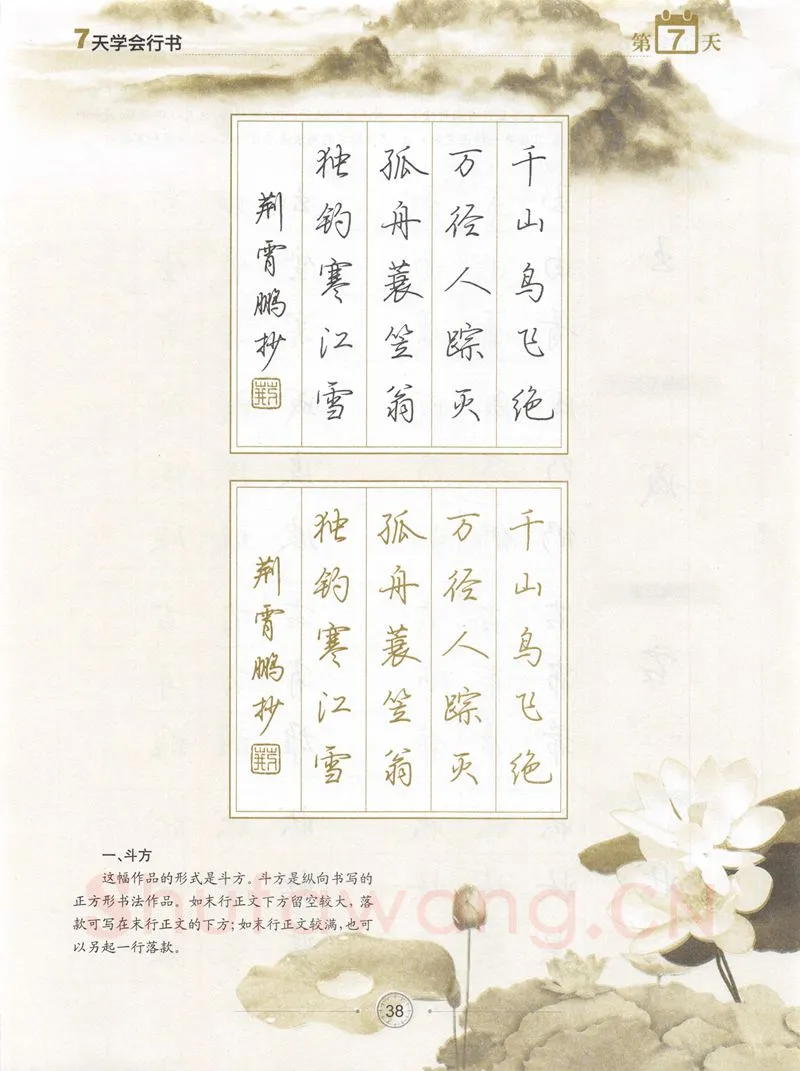 7天学会行书
第7天
千山鸟飞绝
万径人踪灭
孤舟蓑笠翁
独钓寒江雪
荆霄鹏抄
荆
千山鸟飞绝
万径人踪灭
孤舟蓑笠翁
独钓寒江雪
荆霄鹏抄
荆
一、斗方
这幅作品的形式是斗方。斗方是纵向书写的
正方形书法作品。如末行正文下方留空较大，落
款可写在末行正文的下方；如末行正文较满，也可
以另起一行落款。
Shufawang.CN
38